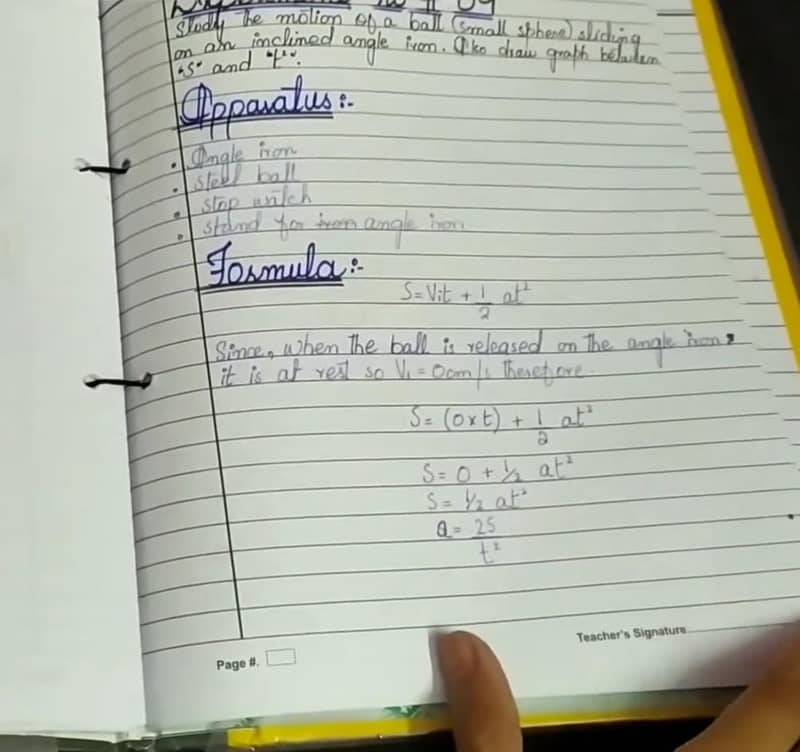 Study the motion of a ball (small sphere) sliding
on an inclined angle iron. Also draw graph between
"S" and "t²".
Apparatus:-
• Angle iron
• Steel ball
• stop watch
• stand for angle iron
Formula:-
S = Vit + 1/2 at²
Since, when the ball is released on the angle iron,
it is at rest so Vi = 0cm/s therefore.
S = (0xt) + 1/2 at²
S = 0 + 1/2 at²
S = 1/2 at²
a = 2S/t²
Teacher's Signature
Page #.